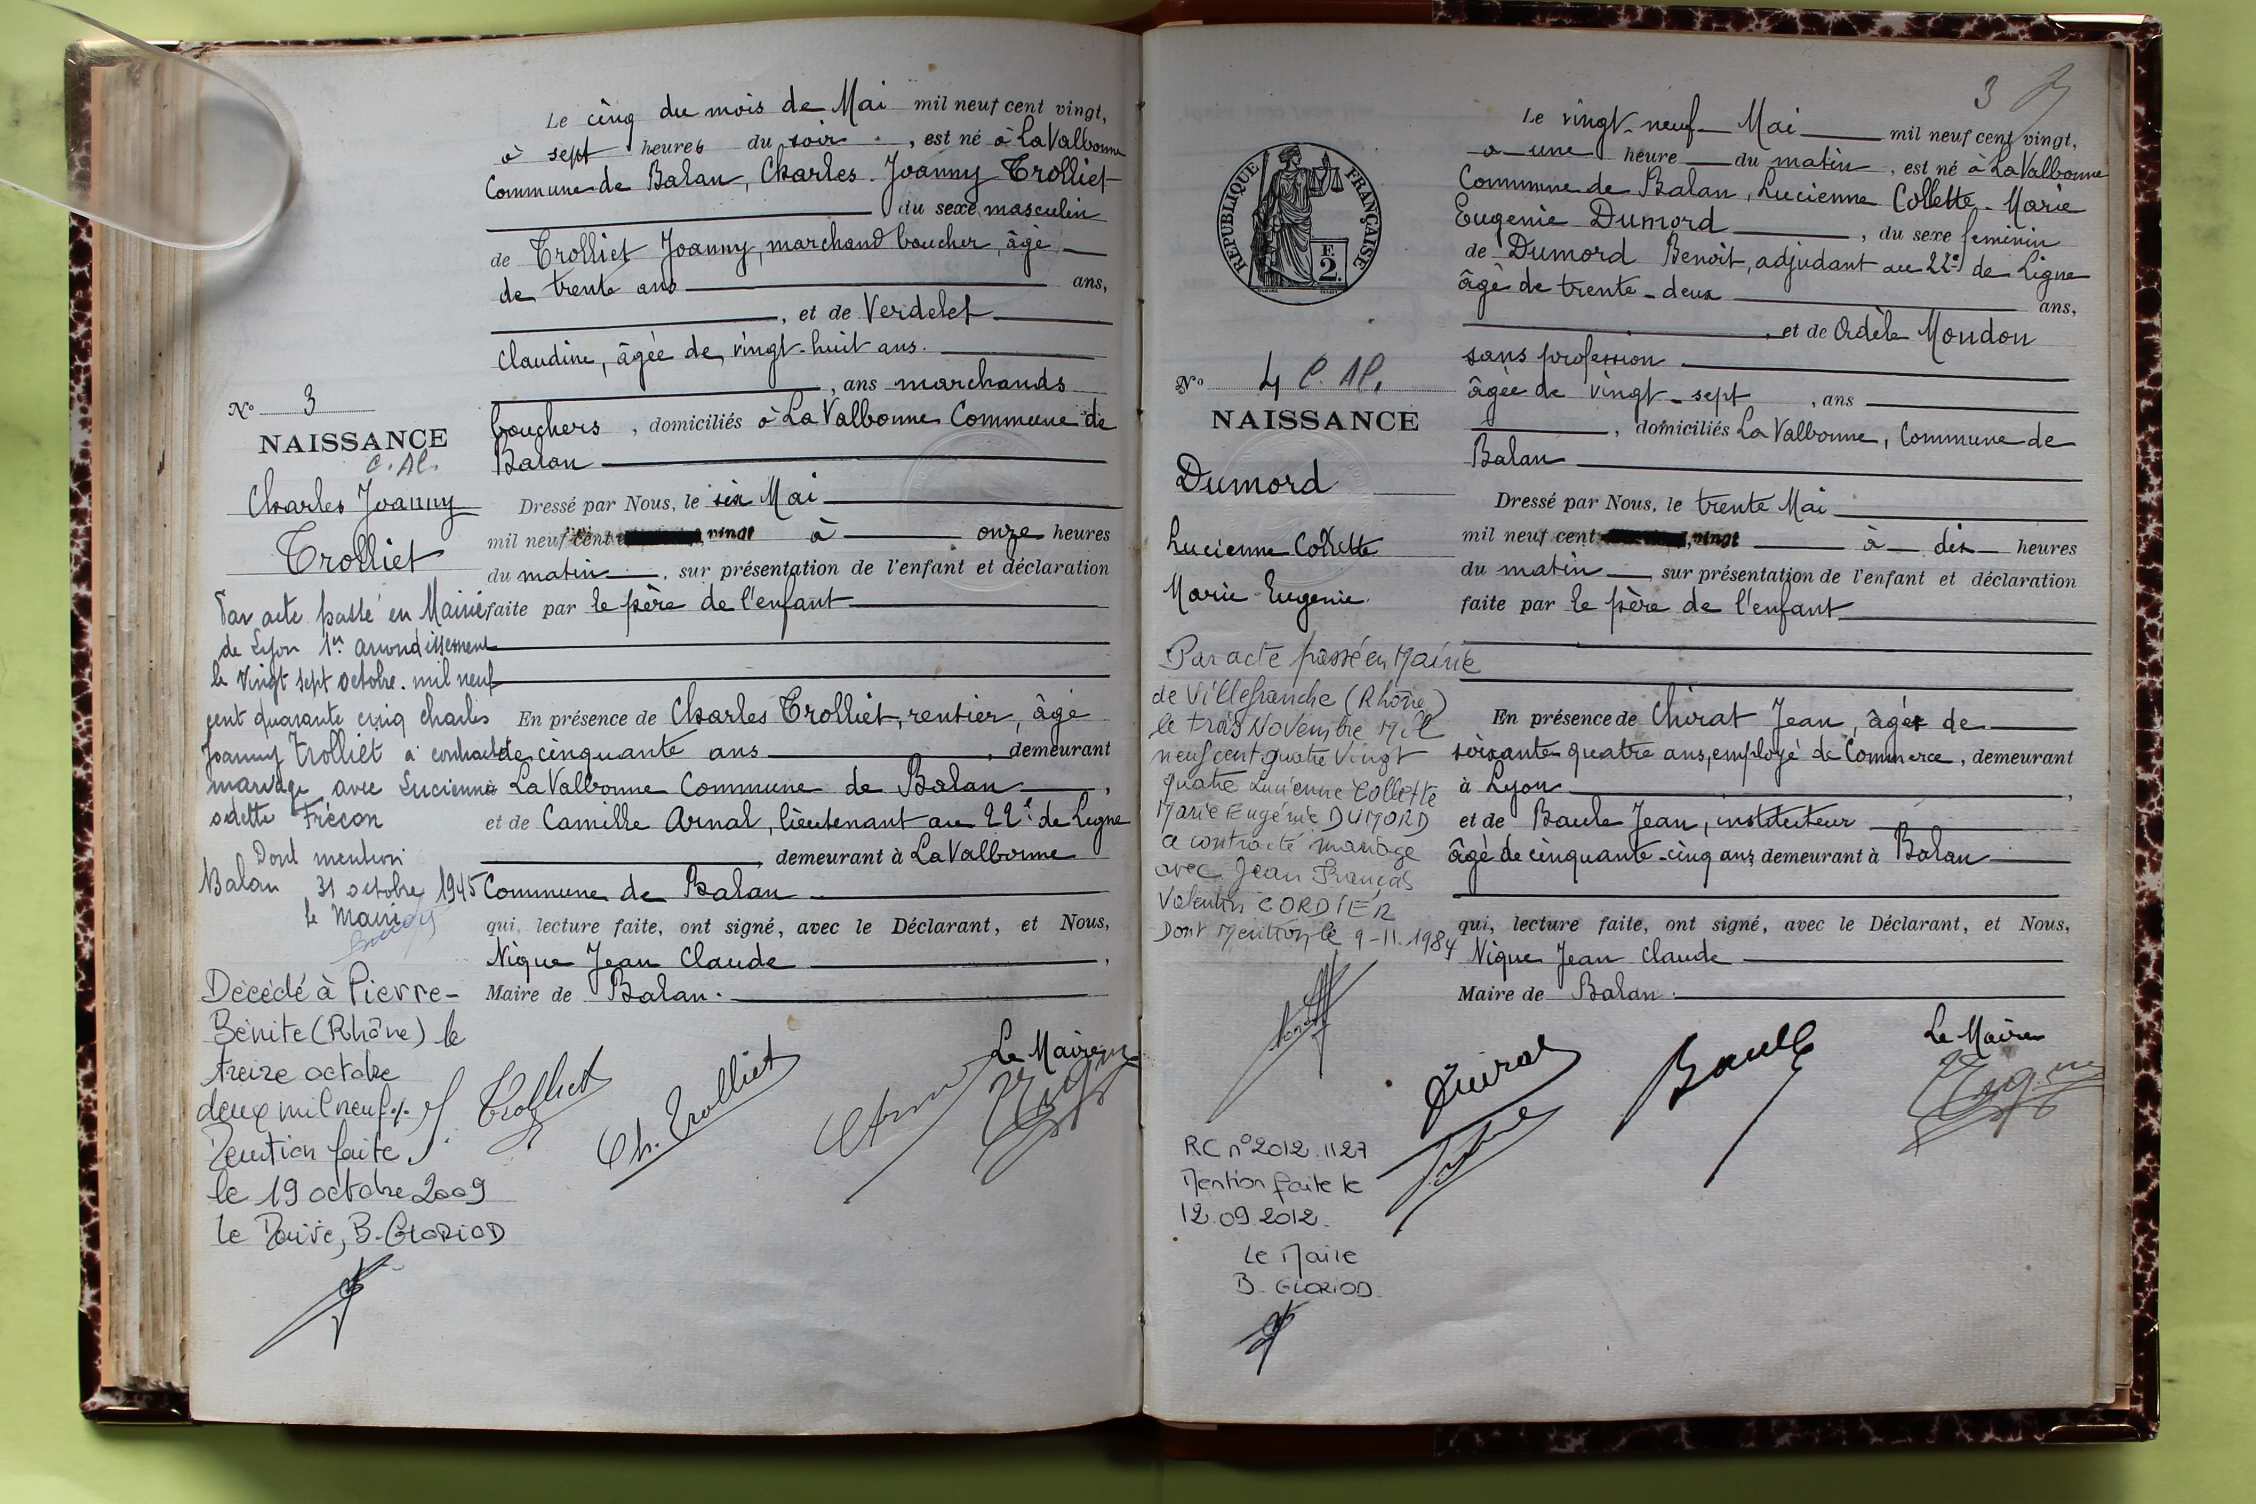 Le cinq du mois de Mai mil neuf cent vingt,
à sept heures du soir, est né à La Valbonne
Commune de Balan, Charles Joanny Trolliet
du sexe masculin
de Trolliet Joanny, marchand boucher, âgé
de trente ans ans,
, et de Verdelet
Claudine, âgée de vingt-huit ans.
, ans marchands
bouchers, domiciliés à La Valbonne Commune de
Balan
Dressé par Nous, le six Mai
mil neuf cent vingt à onze heures
du matin, sur présentation de l'enfant et déclaration
faite par le père de l'enfant
En présence de Charles Trolliet, rentier, âgé
de cinquante ans, demeurant
à La Valbonne Commune de Balan,
et de Camille Arnal, lieutenant au 22e de Ligne
demeurant à La Valbonne
Commune de Balan
qui, lecture faite, ont signé, avec le Déclarant, et Nous,
Nique Jean Claude,
Maire de Balan.
Le Maire
Trolliet
Ch. Trolliet
No 3
NAISSANCE
C. Al.
Charles Joanny
Trolliet
Par acte passé en Mairie
de Lyon 1er arrondissement
le vingt sept octobre mil neuf
cent quarante cinq Charles
Joanny Trolliet a contracté
mariage avec Lucienne
Odette Frécon
Dont mention
Balan 31 octobre 1945
le Maire
Décédé à Pierre-
Bénite (Rhône) le
treize octobre
deux mil neuf
Mention faite
le 19 octobre 2009
Le Maire, B. GLORIOD
3
RÉPUBLIQUE FRANÇAISE
F.
2.
No 4 C. Al.
NAISSANCE
Dumord
Lucienne Collette
Marie-Eugenie.
Par acte passé en Mairie
de Villefranche (Rhône)
le trois Novembre Mil
neuf cent quatre Vingt
quatre Lucienne Collette
Marie Eugénie DUMORD
a contracté mariage
avec Jean François
Valentin CORDIER
Dont Mention le 9-11.1984
RC n° 2012.1127
Mention faite le
12.09.2012.
Le Maire
B. GLORIOD
Le vingt-neuf Mai mil neuf cent vingt,
a une heure du matin, est né à La Valbonne
Commune de Balan, Lucienne Collette-Marie
Eugenie Dumord, du sexe feminin
de Dumord Benoît, adjudant au 22e de Ligne
âgé de trente-deux ans,
, et de Adèle Moudon
sans profession
âgée de vingt-sept, ans
, domiciliés La Valbonne, Commune de
Balan
Dressé par Nous, le trente Mai
mil neuf cent vingt à dix heures
du matin sur présentation de l'enfant et déclaration
faite par le père de l'enfant
En présence de Chirat Jean, âgé de
soixante quatre ans, employé de Commerce, demeurant
à Lyon,
et de Baule Jean, instituteur
âgé de cinquante-cinq ans demeurant à Balan
qui, lecture faite, ont signé, avec le Déclarant, et Nous,
Nique Jean Claude
Maire de Balan.
Le Maire
Baule